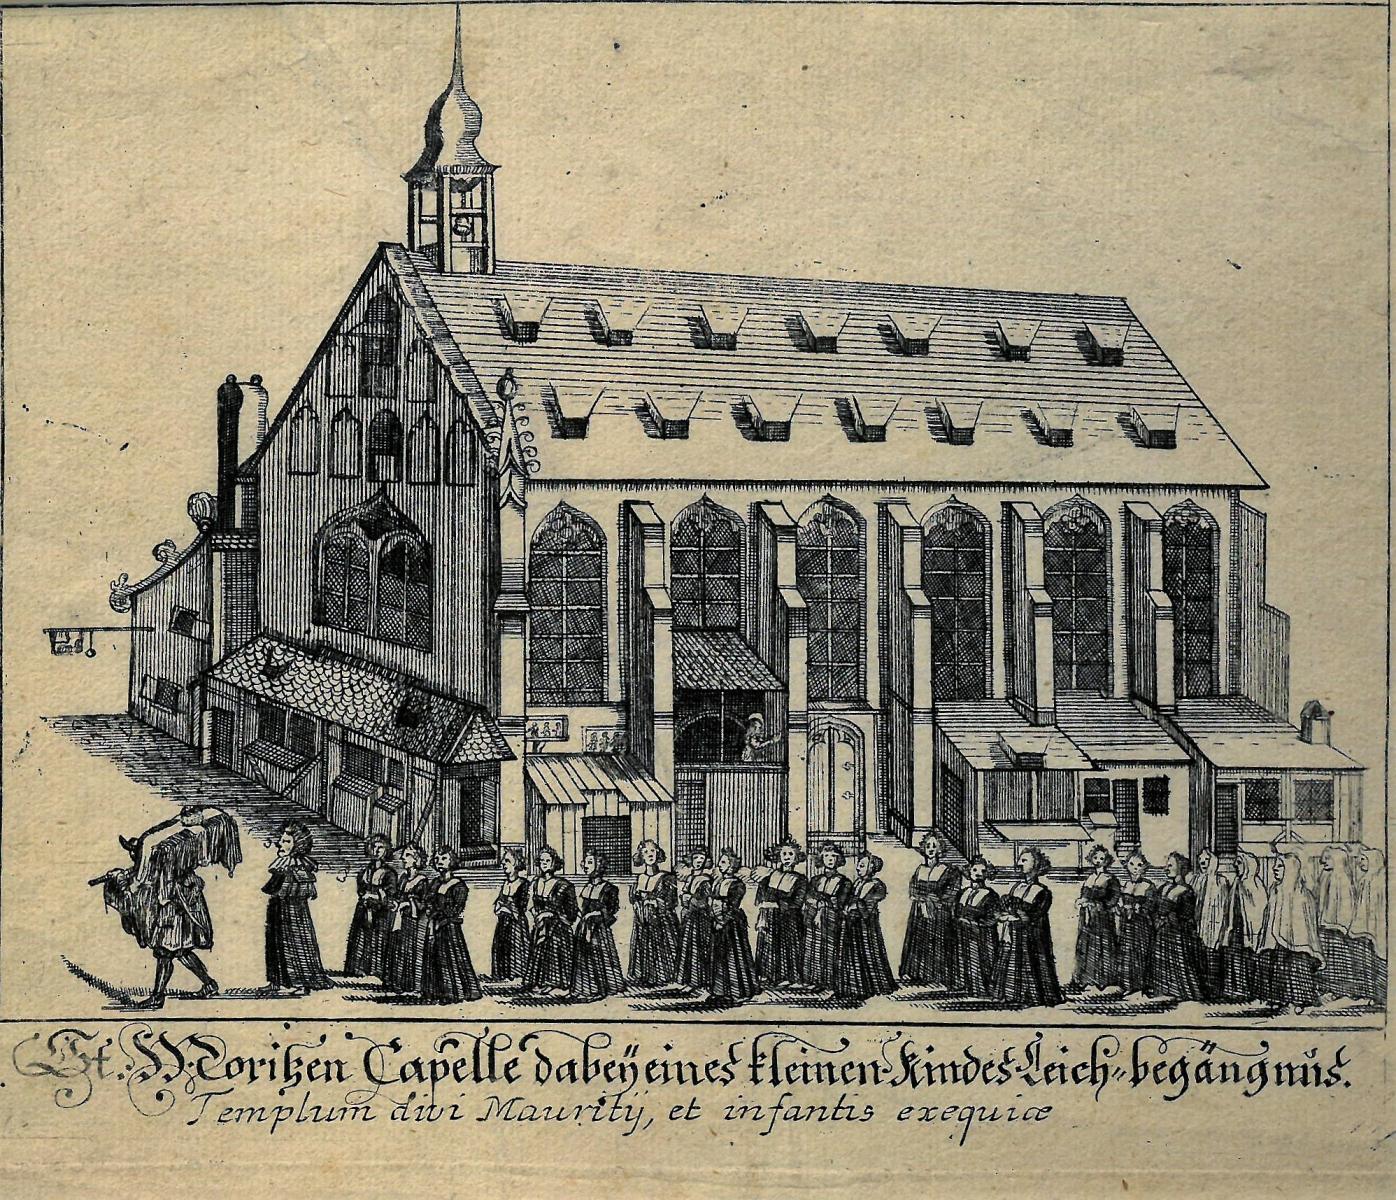 St. Moritzen Capelle dabeÿ eines kleinen Kindes Leich-begängnüs.
Templum divi Mauritij, et infantis exequiæ